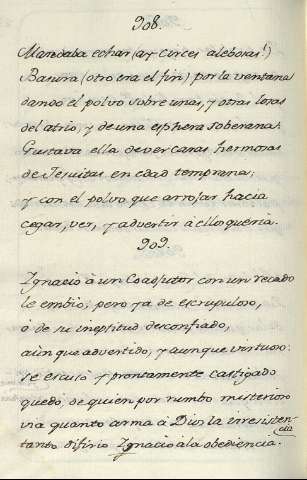 908.
Mandaba echar (ay Circes aleboras!)
Basura (otro era el fin) por la ventana
dando el polvo sobre unas, y otras losas
del atrio, y de una esphera soberana:
Gustava ella de ver caras hermosas
de Jesuitas en edad temprana;
y con el polvo que arrojar hacia
cegar, ver, y advertir à ellos queria.
909.
Ignacio à un Coadjutor con un recado
le embio; pero ya de escrupuloso,
ò de su ineptitud desconfiado,
aùn que advertido, y aunque virtuoso:
se escusò y prontamente castigado
quedò, de quien por rumbo misterioso
via quanto arma à Dios la irresisten-
cia
tanto difirio Ignacio à la obediencia.